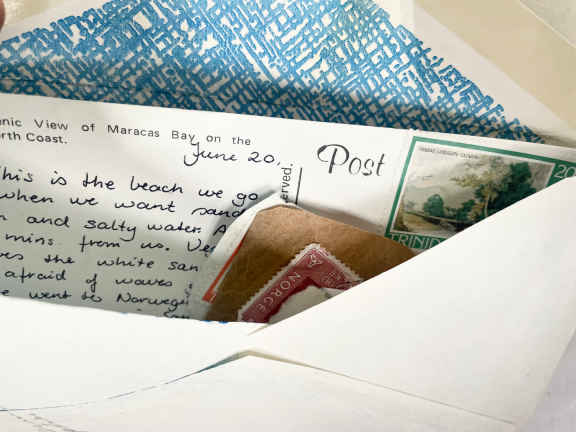 nic View of Maracas Bay on the
rth Coast.
June 20,
Post
erved.
This is the beach we go
when we want sand
and salty water. A
mins. from us. Ve
es the white san
afraid of waves
e went to Norweg
20
TRINID
NORGE